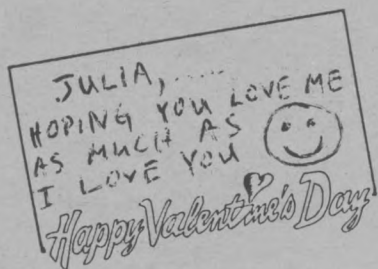 JULIA,....
HOPING YOU LOVE ME
AS MUCH AS
I LOVE YOU
Happy Valentine's Day